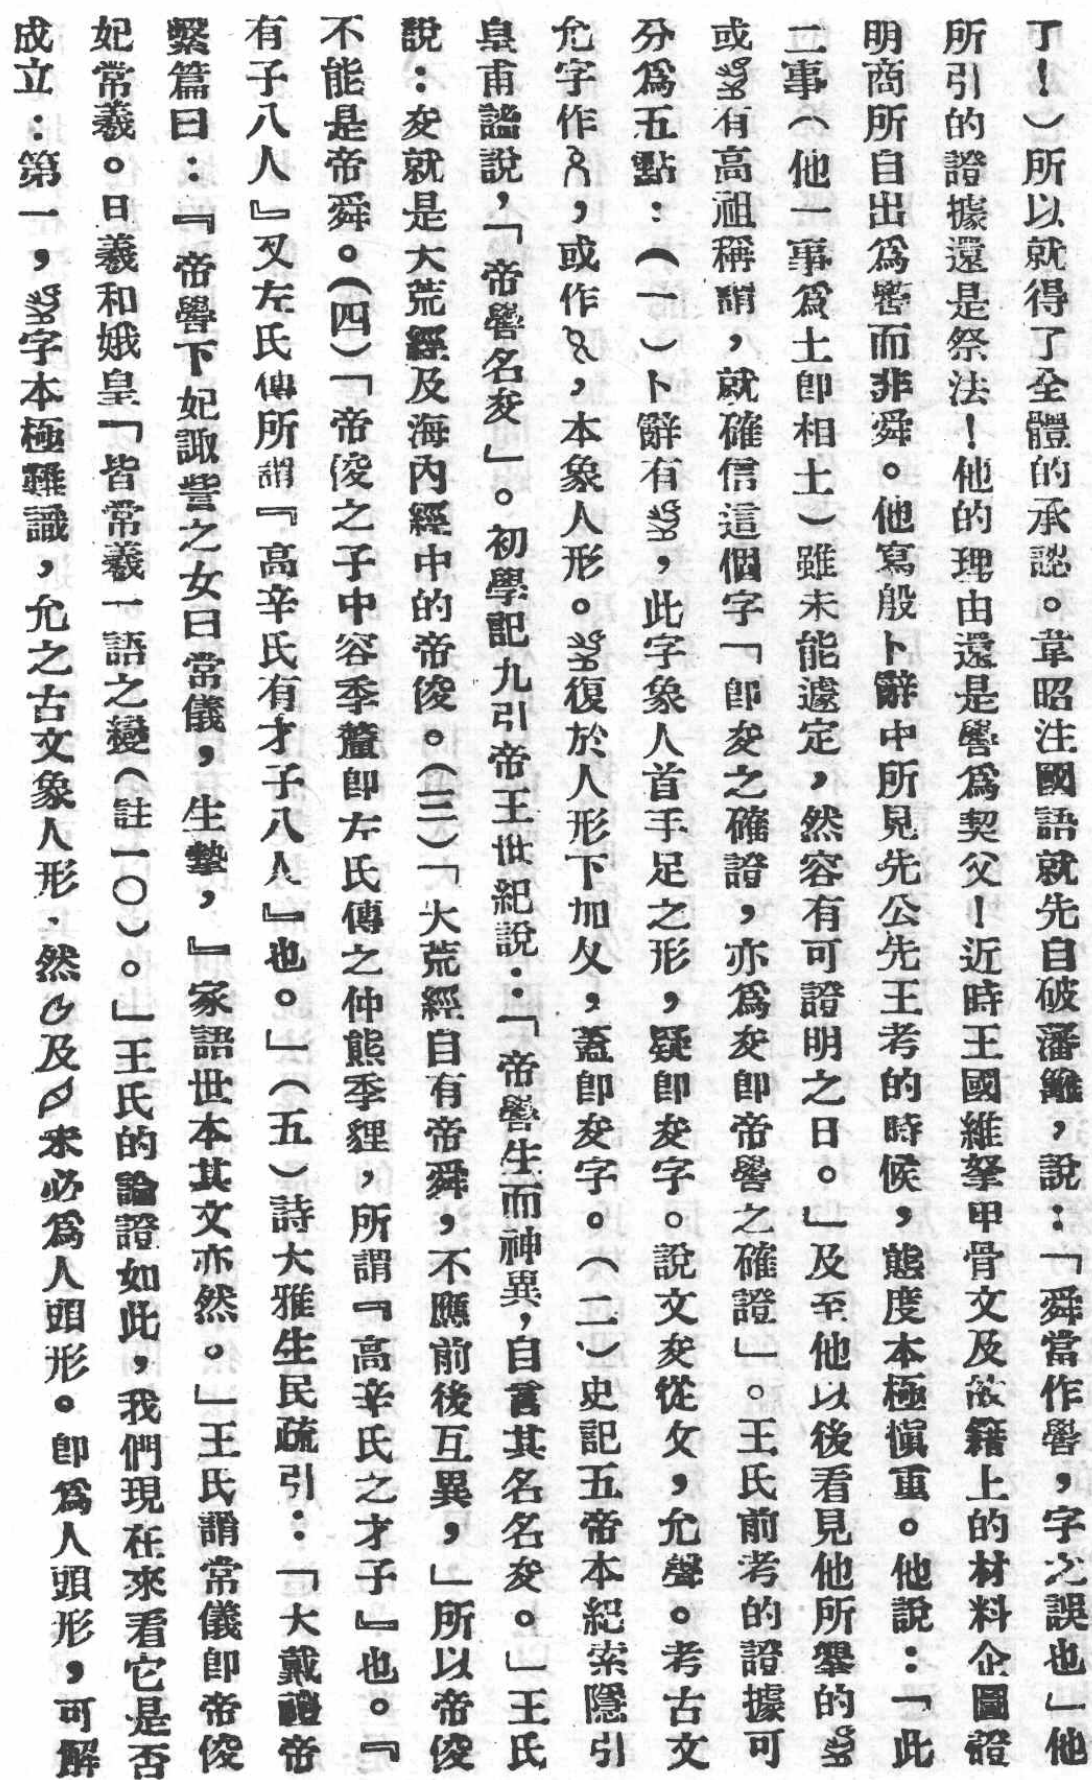 了！）所以就得了全體的承認。韋昭注國語就先自破藩籬，說：「舜當作嚳，字之誤也」他
所引的證據還是祭法！他的理由還是嚳爲契父！近時王國維拏甲骨文及故籍上的材料企圖證
明商所自出爲嚳而非舜。他寫殷卜辭中所見先公先王考的時候，態度本極愼重。他說：「此
二事（他一事爲土卽相土）雖未能遽定，然容有可證明之日。」及至他以後看見他所舉的
或有高祖稱謂，就確信這個字「卽夋之確證，亦爲夋卽帝嚳之確證」。王氏前考的證據可
分爲五點：（一）卜辭有，此字象人首手足之形，疑卽夋字。說文夋從夊，允聲。考古文
允字作，或作，本象人形。復於人形下加夊，蓋卽夋字。（二）史記五帝本紀索隱引
皇甫謐說，「帝嚳名夋」。初學記九引帝王世紀說：「帝嚳生而神異，自言其名名夋。」王氏
說：夋就是大荒經及海內經中的帝俊。（三）「大荒經自有帝舜，不應前後互異，」所以帝俊
不能是帝舜。（四）「帝俊之子中容季釐卽左氏傳之仲熊季貍，所謂『高辛氏之才子』也。『
有子八人』又左氏傳所謂『高辛氏有才子八人』也。」（五）詩大雅生民疏引：「大戴禮帝
繫篇曰：『帝嚳下妃諏訾之女曰常儀，生摯，』家語世本其文亦然。」王氏謂常儀卽帝俊
妃常羲。曰羲和娥皇「皆常羲一語之變（註一〇）。」王氏的論證如此，我們現在來看它是否
成立：第一，字本極難識，允之古文象人形，然及未必爲人頭形。卽爲人頭形，可解